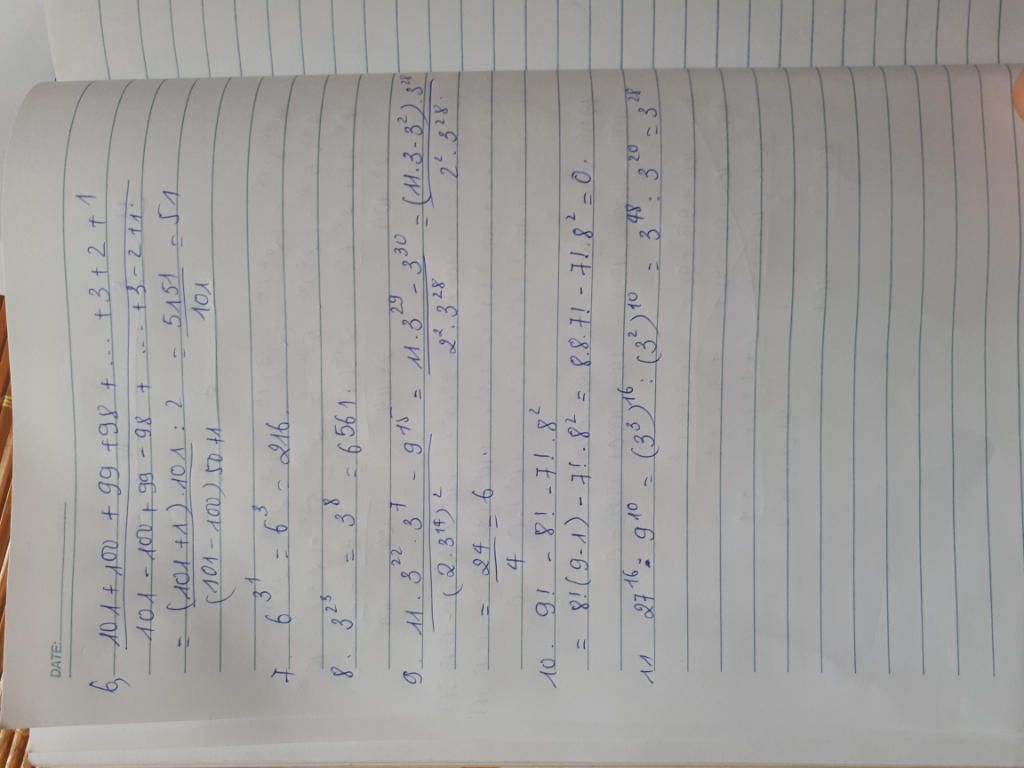 DATE:
6, 101 + 100 + 99 + 98 + ... + 3 + 2 + 1
101 - 100 + 99 - 98 + ... + 3 - 2 + 1.
= (101+1).101 : 2 = 5151 = 51
(101 - 100).50+1 101
7 6^3^1 = 6^3 = 216.
8. 3^2^3 = 3^8 = 6561.
9. 11.3^22.3^7 - 9^15 = 11.3^29 - 3^30 = (11.3-3^2).3^28
(2.3^14)^2 2^2.3^28 2^2.3^28.
= 24 = 6.
4
10. 9! - 8! - 7!.8^2
= 8!(9-1) - 7!.8^2 = 8.8.7! - 7!.8^2 = 0.
11 27^16 : 9^10 = (3^3)^16 : (3^2)^10 = 3^48 : 3^20 = 3^28